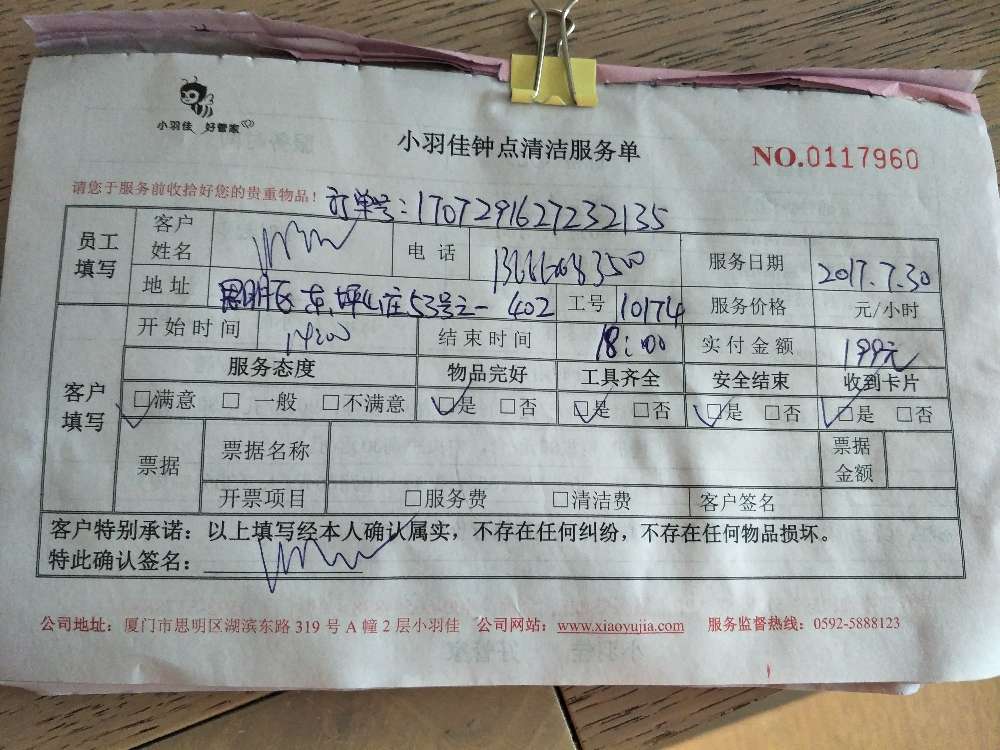 小羽佳 好管家
小羽佳钟点清洁服务单
NO.0117960
请您于服务前收拾好您的贵重物品!
订单号:1707291627232135
员工填写 客户姓名 电话 服务日期 2017.7.30
地址 思明区东坪山庄53号之一402 工号 10174 服务价格 元/小时
客户填写 开始时间 14:00 结束时间 18:00 实付金额 199元
服务态度 物品完好 工具齐全 安全结束 收到卡片
□满意 □一般 □不满意 □是 □否 □是 □否 □是 □否 □是 □否
票据 票据名称 票据金额
开票项目 □服务费 □清洁费 客户签名
客户特别承诺:以上填写经本人确认属实,不存在任何纠纷,不存在任何物品损坏。
特此确认签名:
公司地址:厦门市思明区湖滨东路 319 号 A 幢 2 层小羽佳 公司网站:www.xiaoyujia.com 服务监督热线:0592-5888123